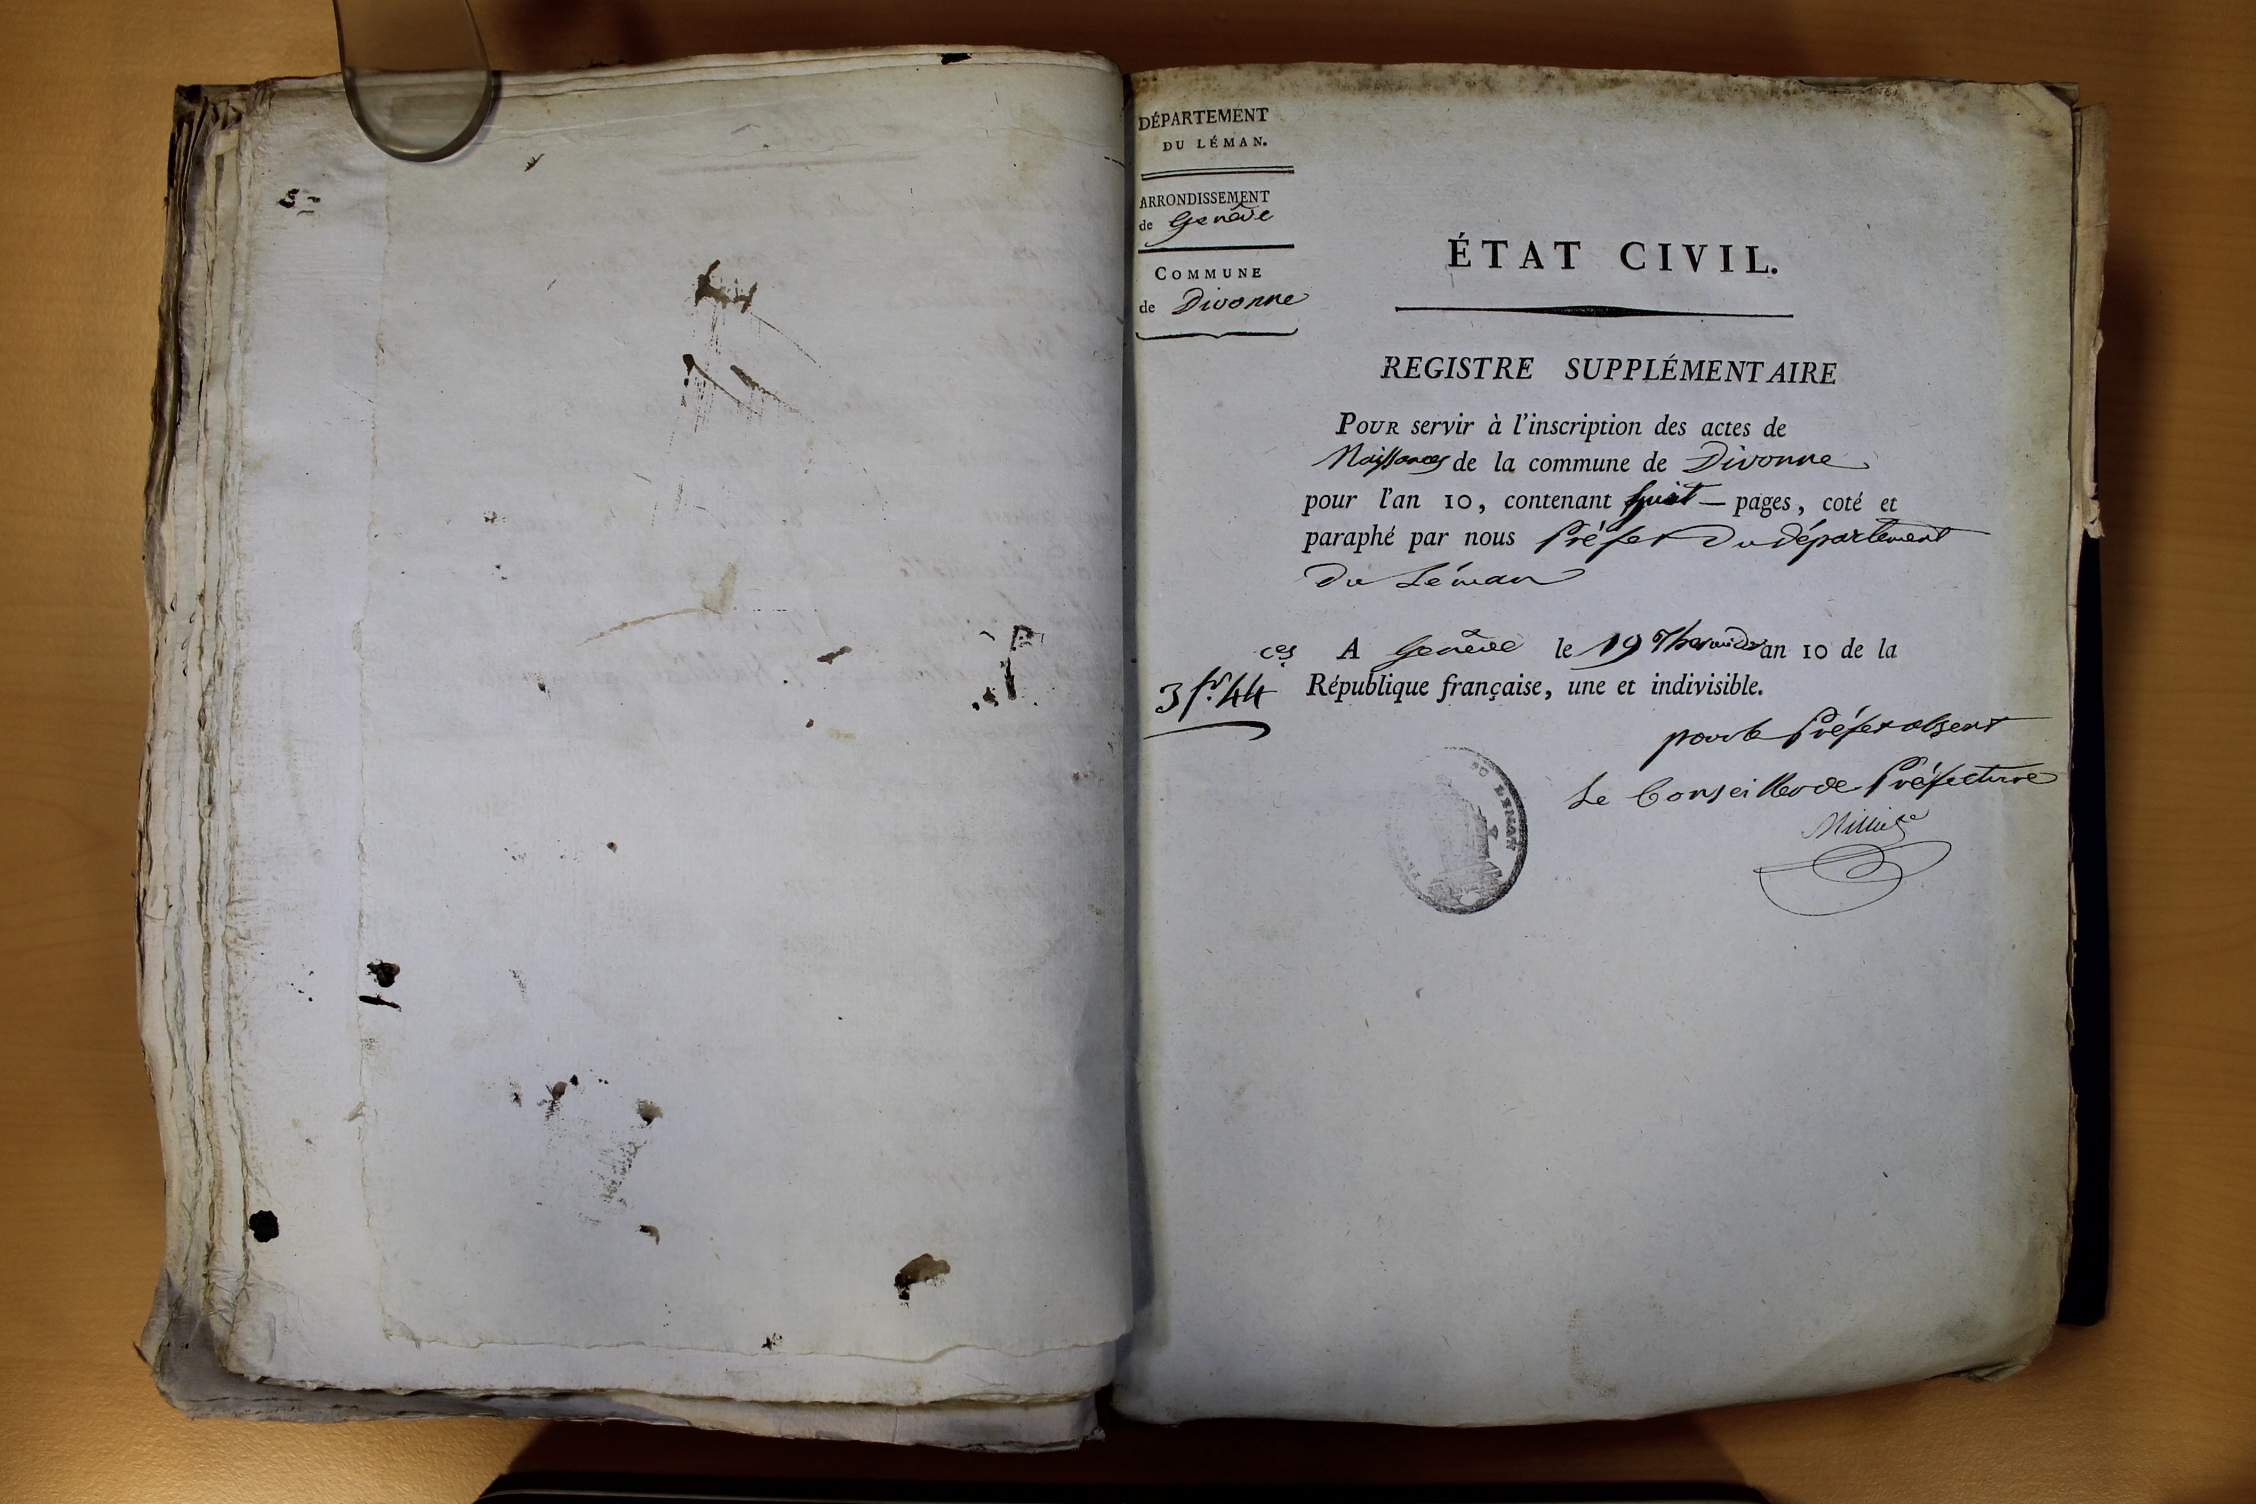 DÉPARTEMENT
DU LÉMAN.
ARRONDISSEMENT
de Genève
COMMUNE
de Divonne
ÉTAT CIVIL.
REGISTRE SUPPLÉMENTAIRE
POUR servir à l'inscription des actes de
Naissances de la commune de Divonne
pour l'an 10, contenant huit — pages, coté et
paraphé par nous Préfet Du département
Du Léman
A Genève le 19 Thermidor an 10 de la
ces
3 fr. 44
République française, une et indivisible.
pour le Préfet absent
Le Conseiller de Préfecture
DU LÉMAN